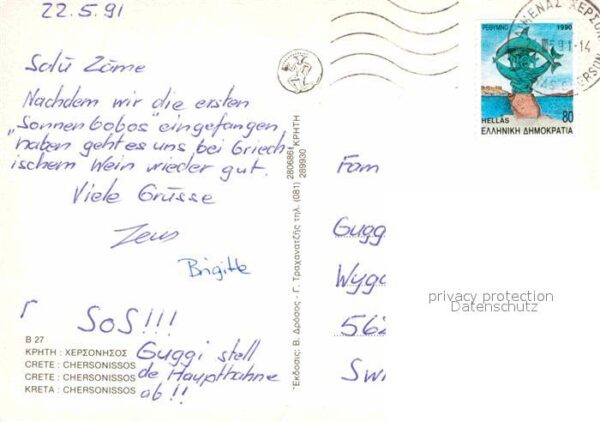 22.5.91
Salü Zäme
Nachdem wir die ersten
„Sonnenbobos" eingefangen
haben geht es uns bei Griech
ischem Wein wieder gut.
Viele Grüsse
Zeus
Brigitte
SOS!!!
Guggi stell
de Haupthahne
ab!!
B 27
ΚΡΗΤΗ : ΧΕΡΣΟΝΗΣΟΣ
CRETE : CHERSONISSOS
CRETE : CHERSONISSOS
KRETA : CHERSONISSOS
Έκδοσις: Β. Δρόσος - Γ. Τραχανατζής τηλ. (081) 280686 289930 ΚΡΗΤΗ
ΡΕΘΥΜΝΟ 1990
HELLAS 80
ΕΛΛΗΝΙΚΗ ΔΗΜΟΚΡΑΤΙΑ
Fam
Gugg
Wyga
562
Sw
privacy protection
Datenschutz